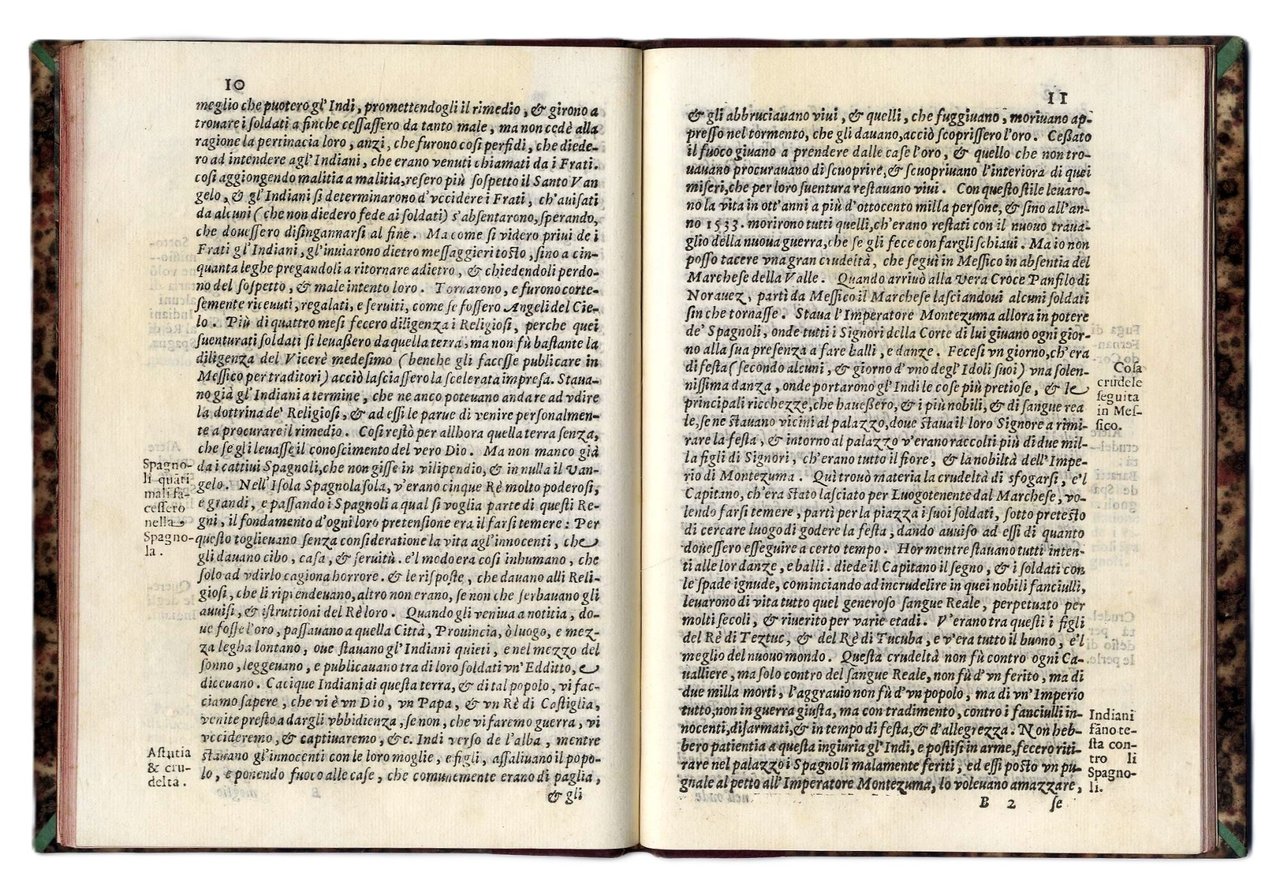 10
meglio che puotero gl'Indi, promettendogli il rimedio, & girono a
trouare i soldati a finche cessassero da tanto male, ma non cedè alla
ragione la pertinacia loro, anzi, che furono cosi perfidi, che diede-
ro ad intendere agl'Indiani, che erano venuti chiamati da i Frati.
cosi aggiongendo malitia a malitia, resero più sospetto il Santo Van
gelo, & gl'Indiani si determinarono d'vccidere i Frati, ch'auisati
da alcuni (che non diedero fede ai soldati) s'absentarono, sperando,
che douessero disingannarsi al fine. Ma come si videro priui de i
Frati gl'Indiani, gl'inuiarono dietro messaggieri tosto, sino a cin-
quanta leghe pregandoli a ritornare adietro, & chiedendoli perdo-
no del sospetto, & male intento loro. Tornarono, e furono corte-
semente riceuuti, regalati, e seruiti, come se fossero Angeli del Cie-
lo. Più di quattro mesi fecero diligenza i Religiosi, perche quei
suenturati soldati si leuassero da quella terra, ma non fù bastante la
diligenza del Vicerè medesimo (benche gli facesse publicare in
Messico per traditori) acciò lasciassero la scelerata impresa. Staua-
no già gl'Indiani a termine, che ne anco poteuano andare ad vdire
la dottrina de' Religiosi, & ad essi le parue di venire personalmen-
te a procurare il rimedio. Cosi restò per allhora quella terra senza,
che se gli leuasse il conoscimento del vero Dio. Ma non manco già
da i cattiui Spagnoli, che non gisse in vilipendio, & in nulla il Van-
gelo. Nell'Isola Spagnola sola, v'erano cinque Rè molto poderosi,
e grandi, e passando i Spagnoli a qual si voglia parte di questi Re-
gni, il fondamento d'ogni loro pretensione era il farsi temere: Per
questo toglieuano senza consideratione la vita agl'innocenti, che
gli dauano cibo, casa, & seruitù. e'l modo era cosi inhumano, che
solo ad vdirlo cagiona horrore. & le risposte, che dauano alli Reli-
giosi, che li riprendeuano, altro non erano, se non che serbauano gli
auuisi, & istruttioni del Rè loro. Quando gli veniua a notitia, do-
ue fosse l'oro, passauano a quella Città, Prouincia, ò luogo, e mez-
za legha lontano, oue stauano gl'Indiani quieti, e nel mezzo del
sonno, leggeuano, e publicauano tra di loro soldati vn'Edditto, e
diceuano. Cacique Indiani di questa terra, & di tal popolo, vi fac-
ciamo sapere, che vi è vn Dio, vn Papa, & vn Rè di Castiglia,
venite presto a dargli vbbidienza, se non, che vi faremo guerra, vi
vccideremo, & captiuaremo, &c. Indi verso de l'alba, mentre
stauano gl'innocenti con le loro moglie, e figli, assaliuano il popo-
lo, e ponendo fuoco alle case, che comunemente erano di paglia,
& gli
Spagno-
li quāti
mali fa-
cessero
nella
Spagno-
la.
Astutia
& cru-
delta.
11
& gli abbruciauano viui, & quelli, che fuggiuano, moriuano ap-
presso nel tormento, che gli dauano, acciò scoprissero l'oro. Cessato
il fuoco giuano a prendere dalle case l'oro, & quello che non tro-
uauano procurauano di scuoprire, & scuopriuano l'interiora di quei
miseri, che per loro suentura restauano viui. Con questo stile leuaro-
no la vita in ott'anni a più d'ottocento milla persone, & sino all'an-
no 1533. morirono tutti quelli, ch'erano restati con il nuouo traua-
glio della nuoua guerra, che se gli fece con fargli schiaui. Ma io non
posso tacere vna gran crudeltà, che seguì in Messico in absentia del
Marchese della Valle. Quando arriuò alla Vera Croce Panfilo di
Norauez, partì da Messico il Marchese lasciandoui alcuni soldati
sin che tornasse. Staua l'Imperatore Montezuma allora in potere
de' Spagnoli, onde tutti i Signori della Corte di lui giuano ogni gior-
no alla sua presenza a fare balli, e danze. Fecesi vn giorno, ch'era
di festa (secondo alcuni, & giorno d'vno degl'Idoli suoi) vna solen-
nissima danza, onde portarono gl'Indi le cose più pretiose, & le
principali ricchezze, che hauessero, & i più nobili, & di sangue rea
le, se ne stauano vicini al palazzo, doue staua il loro Signore a rimi-
rare la festa, & intorno al palazzo v'erano raccolti più di due mil-
la figli di Signori, ch'erano tutto il fiore, & la nobiltà dell'Impe-
rio di Montezuma. Quì trouò materia la crudeltà di sfogarsi, e'l
Capitano, ch'era stato lasciato per Luogotenente dal Marchese, vo-
lendo farsi temere, partì per la piazza i suoi soldati, sotto pretesto
di cercare luogo di godere la festa, dando auuiso ad essi di quanto
douessero esseguire a certo tempo. Hor mentre stauano tutti inten-
ti alle lor danze, e balli. diede il Capitano il segno, & i soldati con
le spade ignude, cominciando ad incrudelire in quei nobili fanciulli,
leuarono di vita tutto quel generoso sangue Reale, perpetuato per
molti secoli, & riuerito per varie etadi. V'erano tra questi i figli
del Rè di Teztuc, & del Rè di Tucuba, e v'era tutto il buono, e'l
meglio del nuouo mondo. Questa crudeltà non fù contro ogni Ca-
ualliere, ma solo contro del sangue Reale, non fù d'vn ferito, ma di
due milla morti, l'aggrauio non fù d'vn popolo, ma di vn'Imperio
tutto, non in guerra giusta, ma con tradimento, contro i fanciulli in-
nocenti, disarmati, & in tempo di festa, & d'allegrezza. Non heb-
bero patientia a questa ingiuria gl'Indi, e postisi in arme, fecero riti-
rare nel palazzo i Spagnoli malamente feriti, ed essi posto vn pu-
gnale al petto all'Imperatore Montezuma, lo voleuano amazzare,
B 2 se
Cosa
crudele
seguita
in Mes-
sico.
Indiani
fāno te-
sta con-
tro li
Spagno-
li.